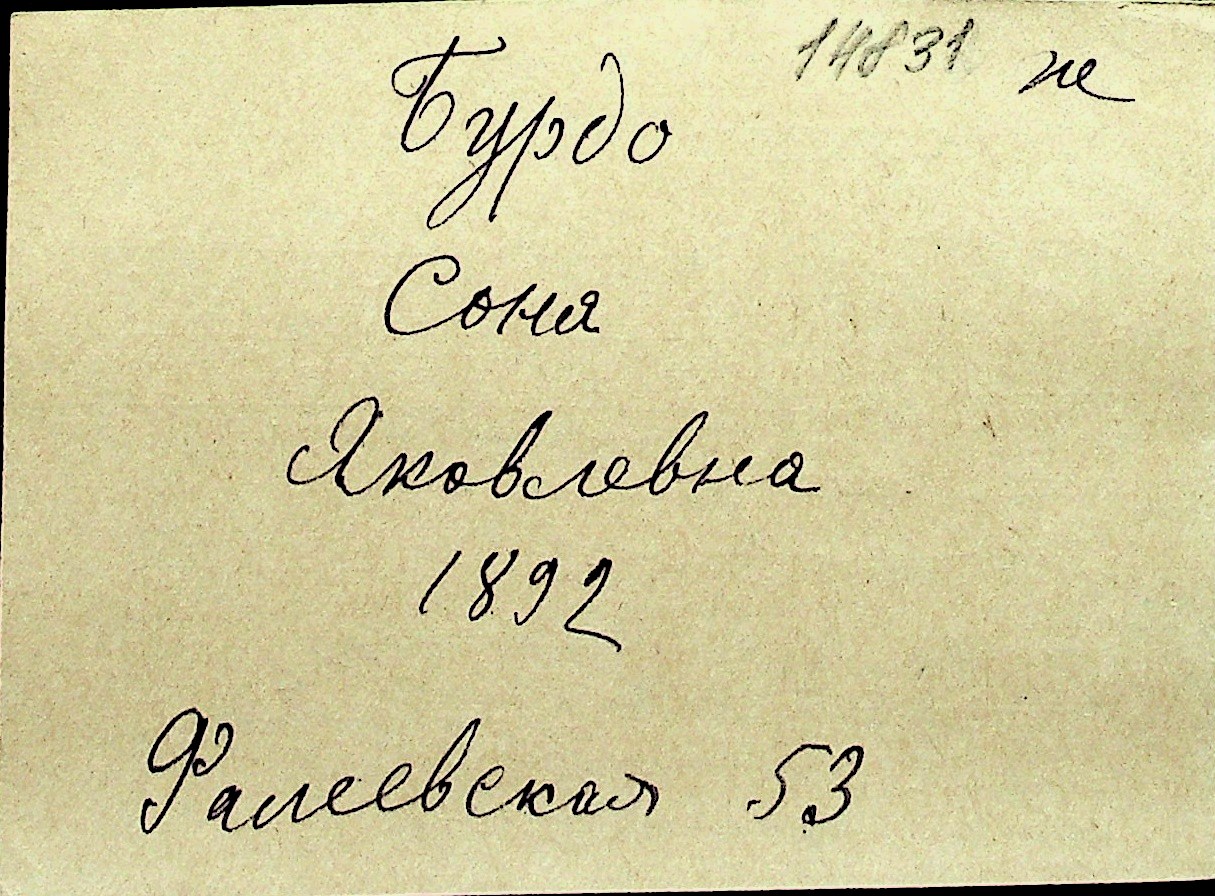 14831 ж
Бурдо
Соня
Яковлевна
1892
Фалеевская 53